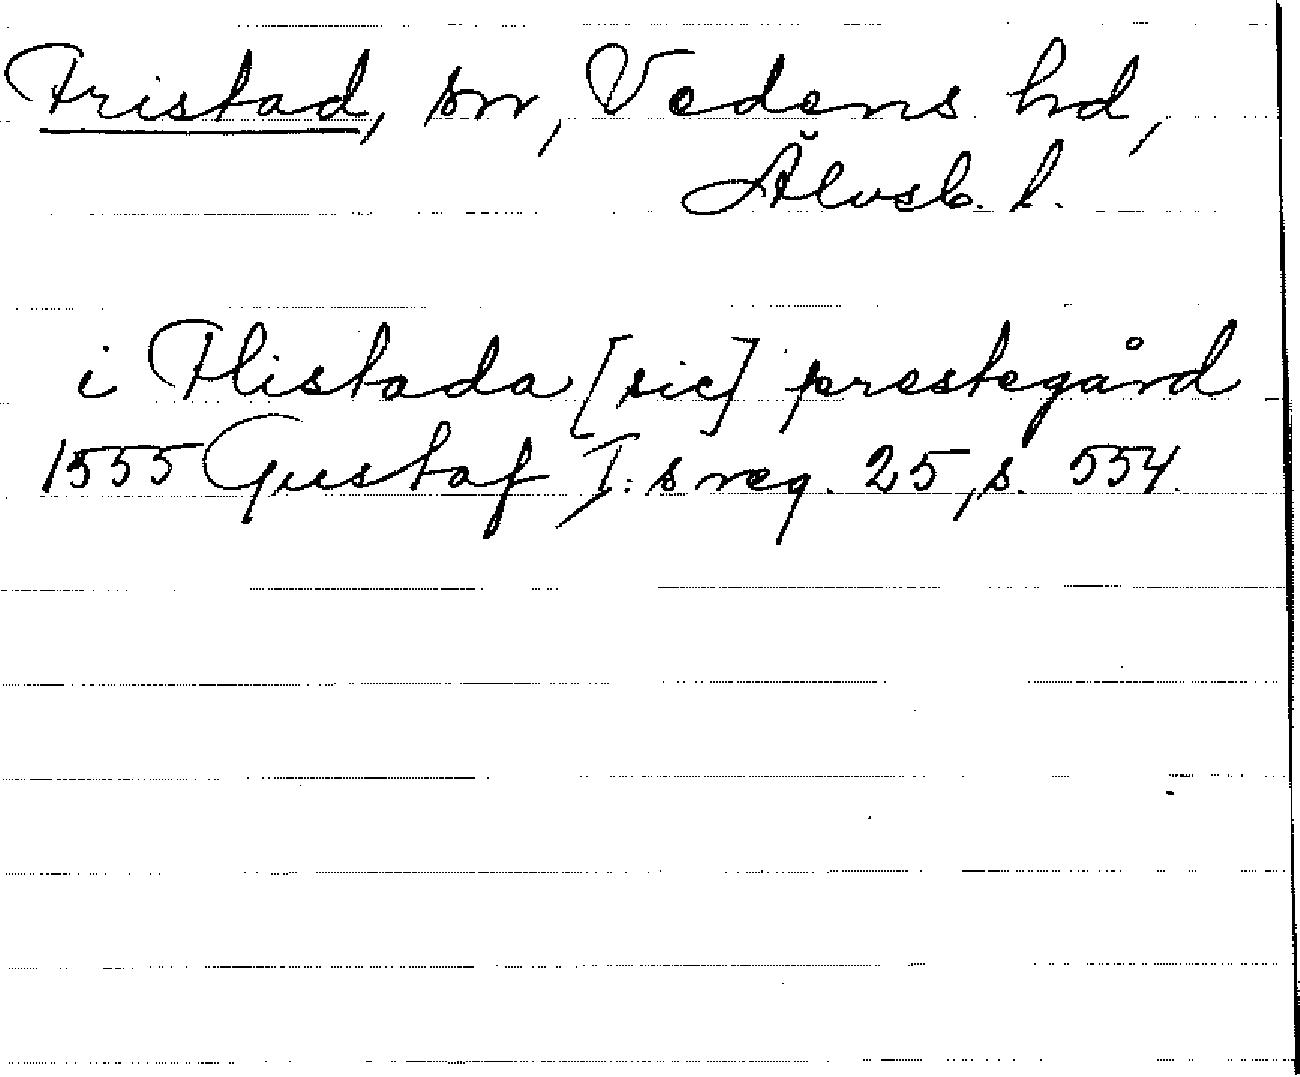 Fristad, sn, Vedens hd,
Älvsb. l.
i Flistada [sic] prestegård
1555 Gustaf I:s reg. 25, s. 554.